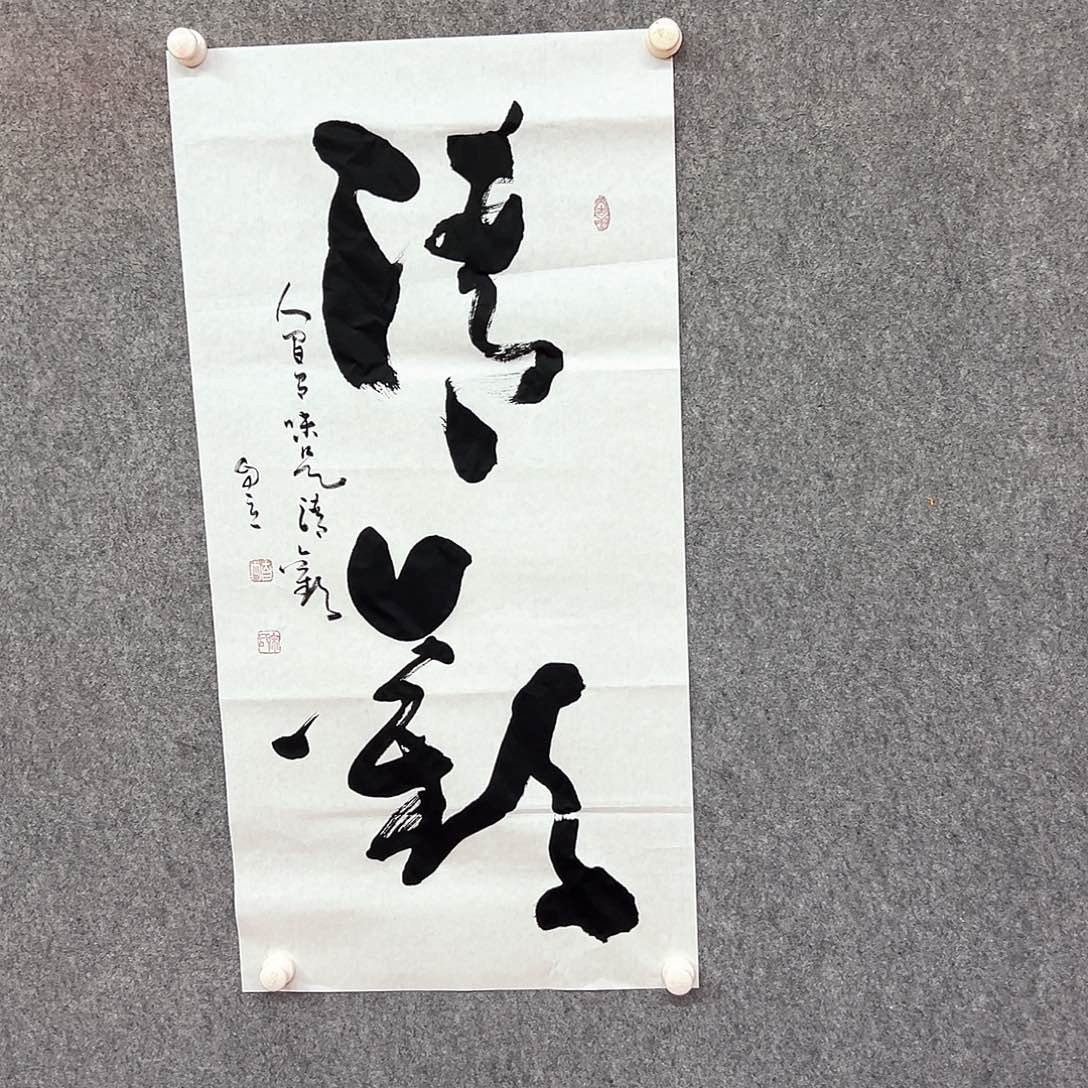 清歡
人間有味是清歡